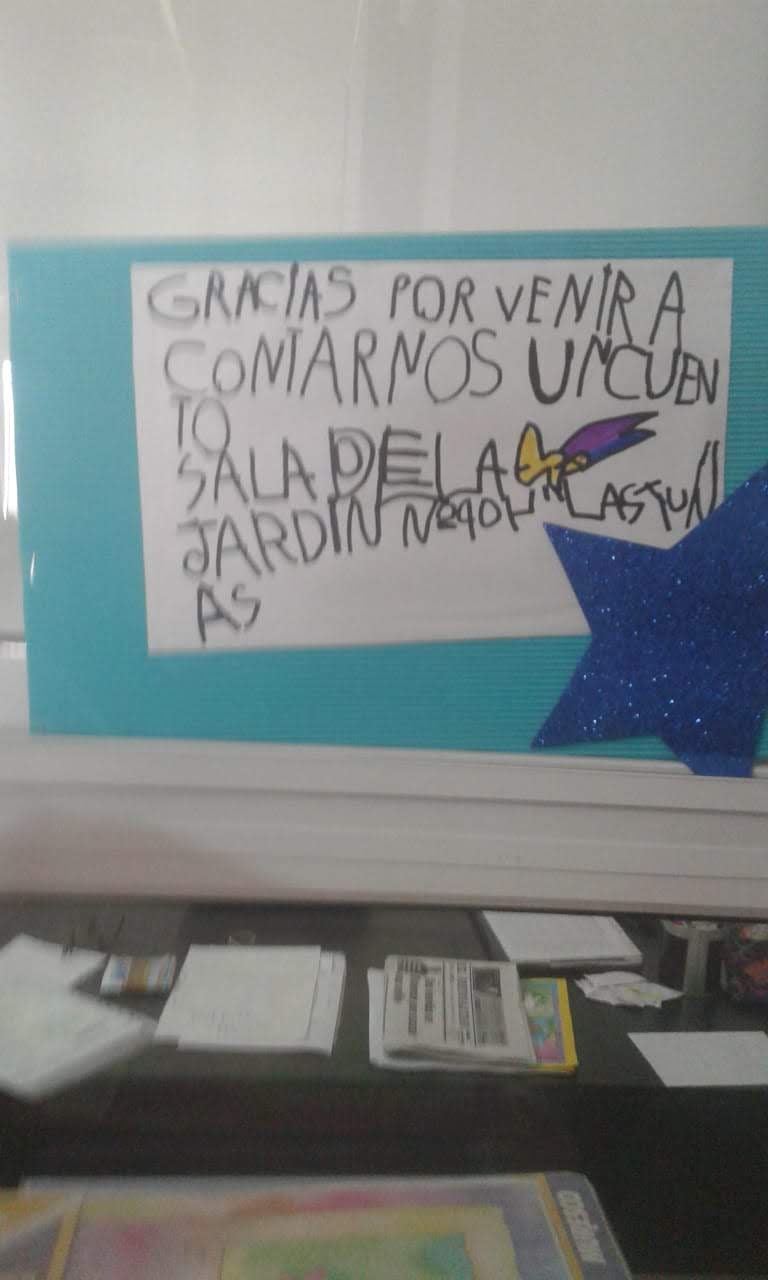 GRACIAS POR VENIR A
CONTARNOS UNCUEN
TO
SALA DE LA
JARDIN Nº LAS TUÑ
AS